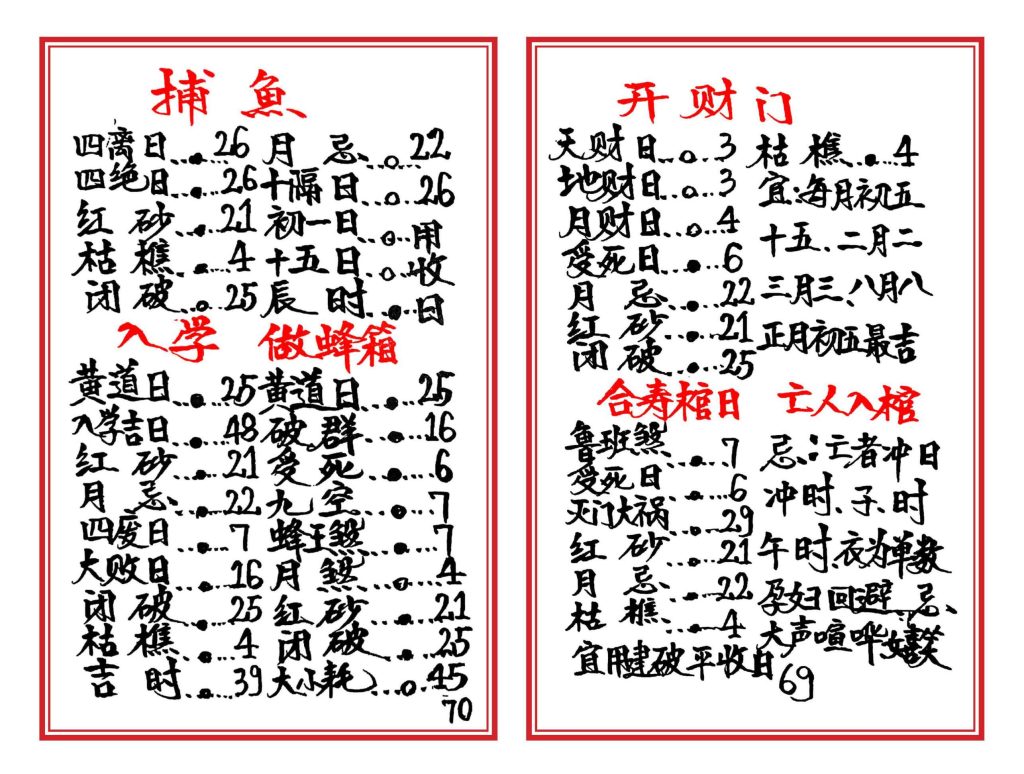 捕魚
四离日...26 月忌...22
四绝日...26 十隔日...26
红砂...21 初一日...用
枯樵...4 十五日...收
闭破...25 辰时...日
入学 做蜂箱
黄道日...25 黄道日...25
入学吉日...48 破群...16
红砂...21 受死...6
月忌...22 九空...7
四废日...7 蜂王煞...7
大败日...16 月煞...4
闭破...25 红砂...21
枯樵...4 闭破...25
吉时...39 大小耗...45
70
开财门
天财日...3 枯樵...4
地财日...3 宜:每月初五
月财日...4 十五、二月二
受死日...6 三月三、八月八
月忌...22 正月初五最吉
红砂...21
闭破...25
合寿棺日 亡人入棺
鲁班煞...7 忌:亡者冲日
受死日...6 冲时、子时
灭门大祸...29 午时、衣为单数
红砂...21 孕妇回避、忌、
月忌...22 大声喧哗嬉笑
枯樵...4
宜用建破平收日
69